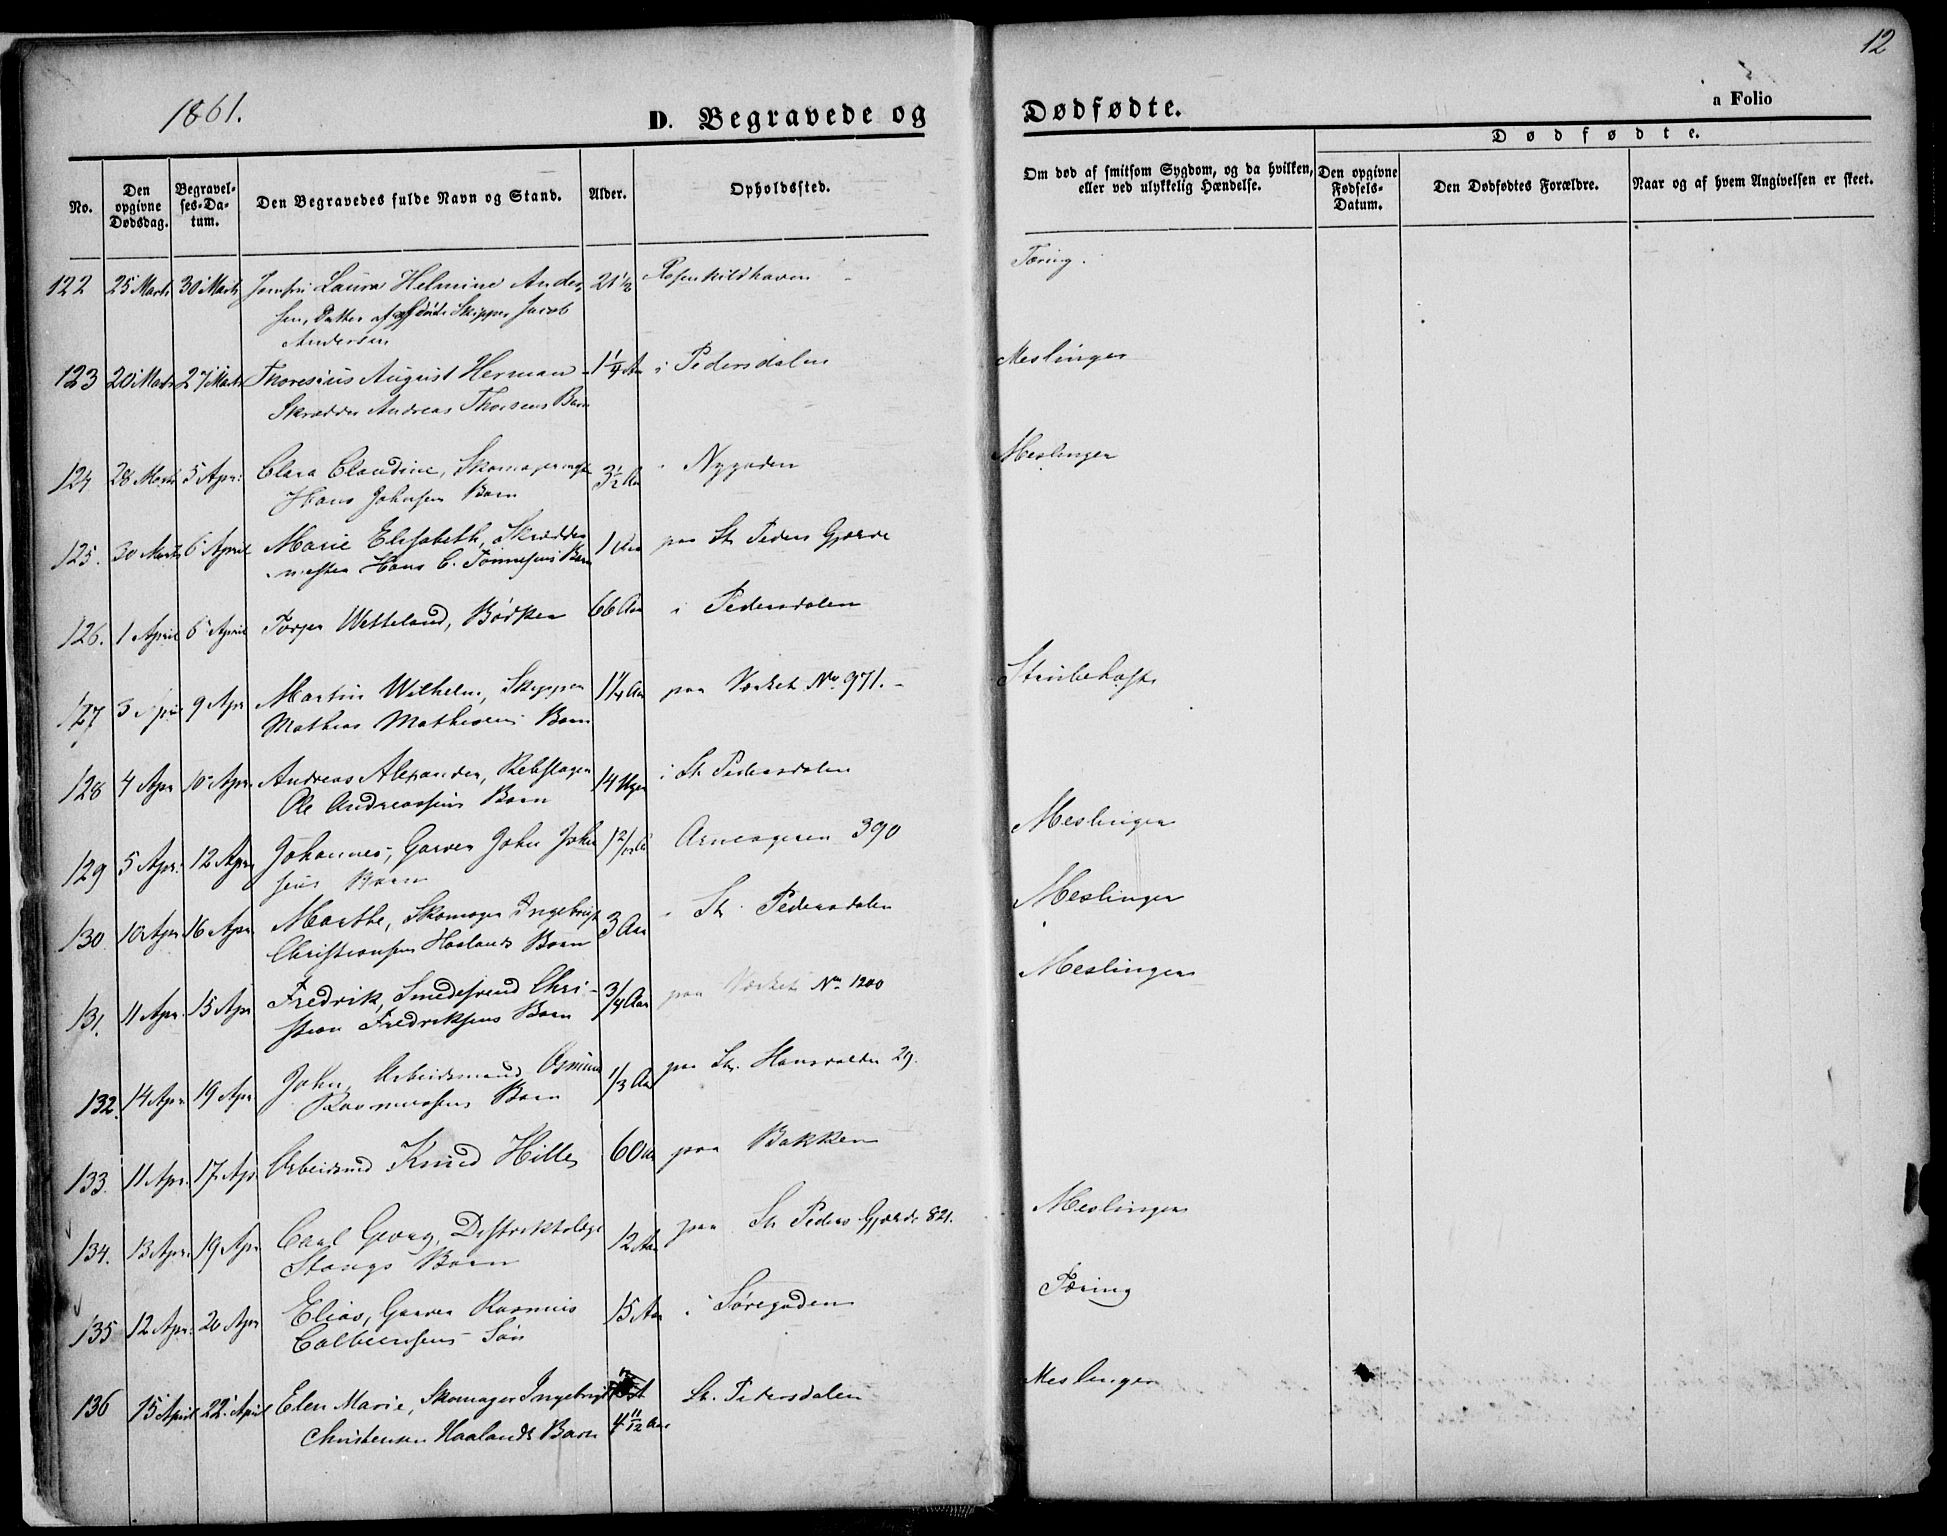 12
1861.
D. Begravede og
Dødfødte.
a Folio
No.
Den opgivne Dødsdag.
Begravelses-Datum.
Den Begravedes fulde Navn og Stand.
Alder.
Opholdssted.
Om død af smitsom Sygdom, og da hvilken, eller ved ulykkelig Hændelse.
Dødfødte.
Den opgivne Fødsels-Datum.
Den Dødfødtes Forældre.
Naar og af hvem Angivelsen er skeet.
122 25 Marts 30 Marts Jomfru Laura Helmine Ander- 21 Rosenkildhaven Tæring.
sen, Datter af afdøde Skipper Jacob
Andersen
123 20 Marts 27 Marts Thoresius August Herman 1 1/4 Aar i Pedersdalen Meslinger
Skrædder Andreas Thorsens Barn
124 28 Marts 5 Apr: Clara Claudine, i Nygaden Meslinger
Hans Johnsens Barn 3 1/2 Aar
125. 30 Marts 6 April Marie Elisabeth, Skrædder- 1 Aar paa St. Peders Gjerde
mester Hans C. Tønnesens Barn
126. 1 April 6 April Torger Wetteland, Bødker 66 Aar i Pedersdalen
127 3 April 9 Apr Martin Wilhelm, Skipper 1 1/4 Aar paa Værket No. 971. Strubehoste
Mathias Mathiesens Barn
128 4 Apr 10 Apr Andreas Alexander, Rebslager 14 Uger i St. Pedersdalen
Ole Andreassens Barn
129 5 Apr: 12 Apr Johannes, Garver John John- Arneageren 390 Meslinger
sens Barn
130 10 Apr 16 Apr Marthe, Skomager Ingebrigt 3 Aar i St. Pedersdalen Meslinger
Christiansen Haalands Barn
131. 11 Apr. 15 Apr Fredrik, Smedesvend Chri- 3/4 Aar paa Værket No 1200 Meslinger
stian Fredriksens Barn
132. 14 Apr 19 Apr John, Arbeidsmand Osmund 1/3 Aar paa St. Hansvolden 29.
Rasmussens Barn
133. 11 Apr. 17 Apr Arbeidsmd Knud Hille 60 Aar paa Bakken
134. 13 Apr. 19 Apr Carl Georg, Distriktslæge 12 Aar paa St. Peders Gjerde 821. Meslinger
Stangs Barn
135 12 Apr. 20 Apr Elias, Garver Rasmus 15 Aar i Søregaden Tæring
Colbeinsens Søn
136 15 April 22 April Elen Marie, Skomager Ingebrigt St. Pedersdalen Meslinger
Christensen Haalands Barn 4 11/12 Aar